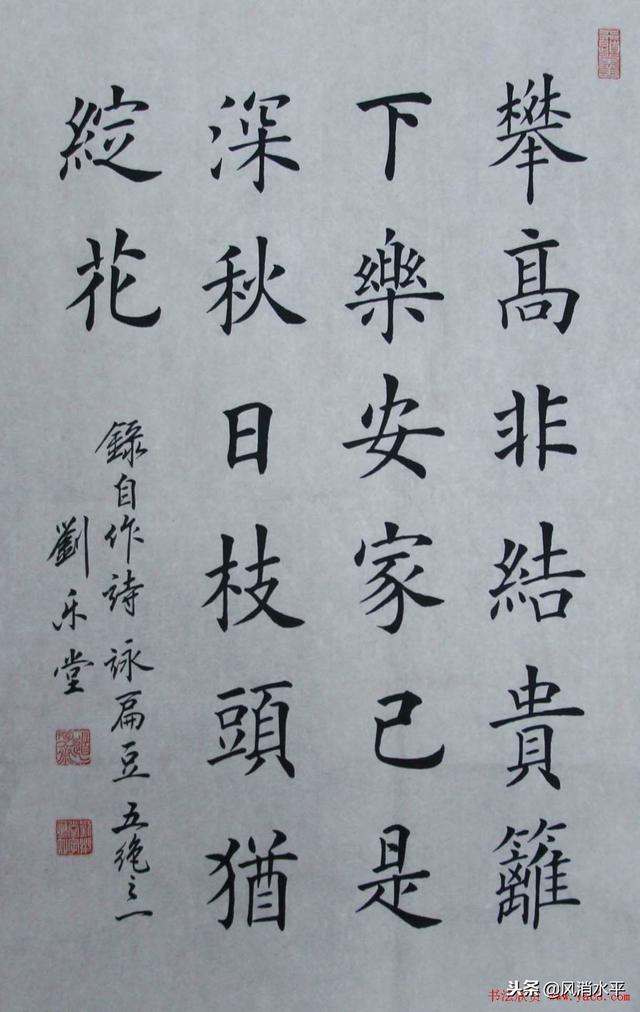 攀高非結貴籬
下樂安家已是
深秋日枝頭猶
綻花
錄自作詩詠扁豆五绝之一
劉乐堂
头条@风消水平
书法欣赏 www.yac8.com